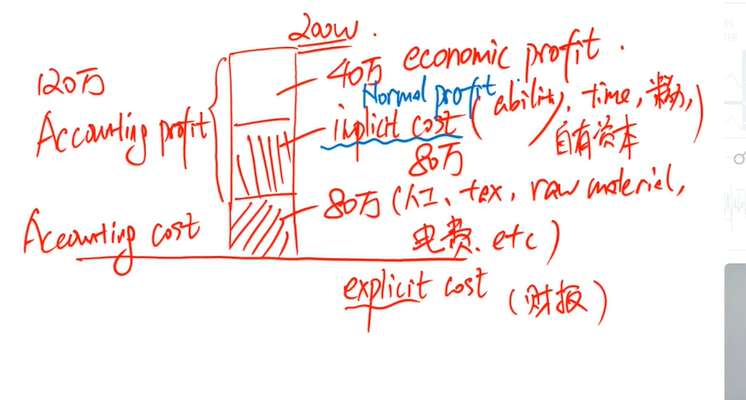 200w.
40万 economic profit.
120万
Normal profit
Accounting profit
implicit cost (ability, time, 精力,
自有资本)
80万
80万 (人工、tax, raw material,
Accounting cost
电费、etc)
explicit cost
(财报)